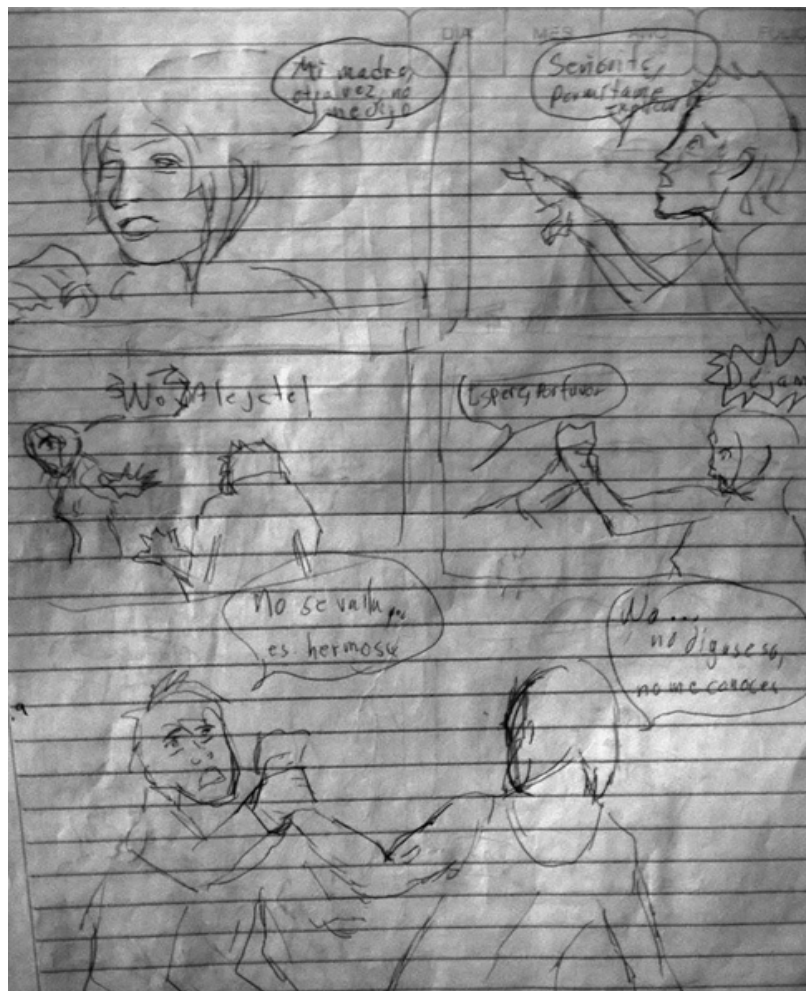 DIA MES AÑO FOLIO
Mi madre,
otra vez, no
me dejo
Señorita,
Permitame
explicar
No Alejate!
Espere, Por favor
Dejam
No se valla,
es hermosa
No...
no digas eso,
no me conoces